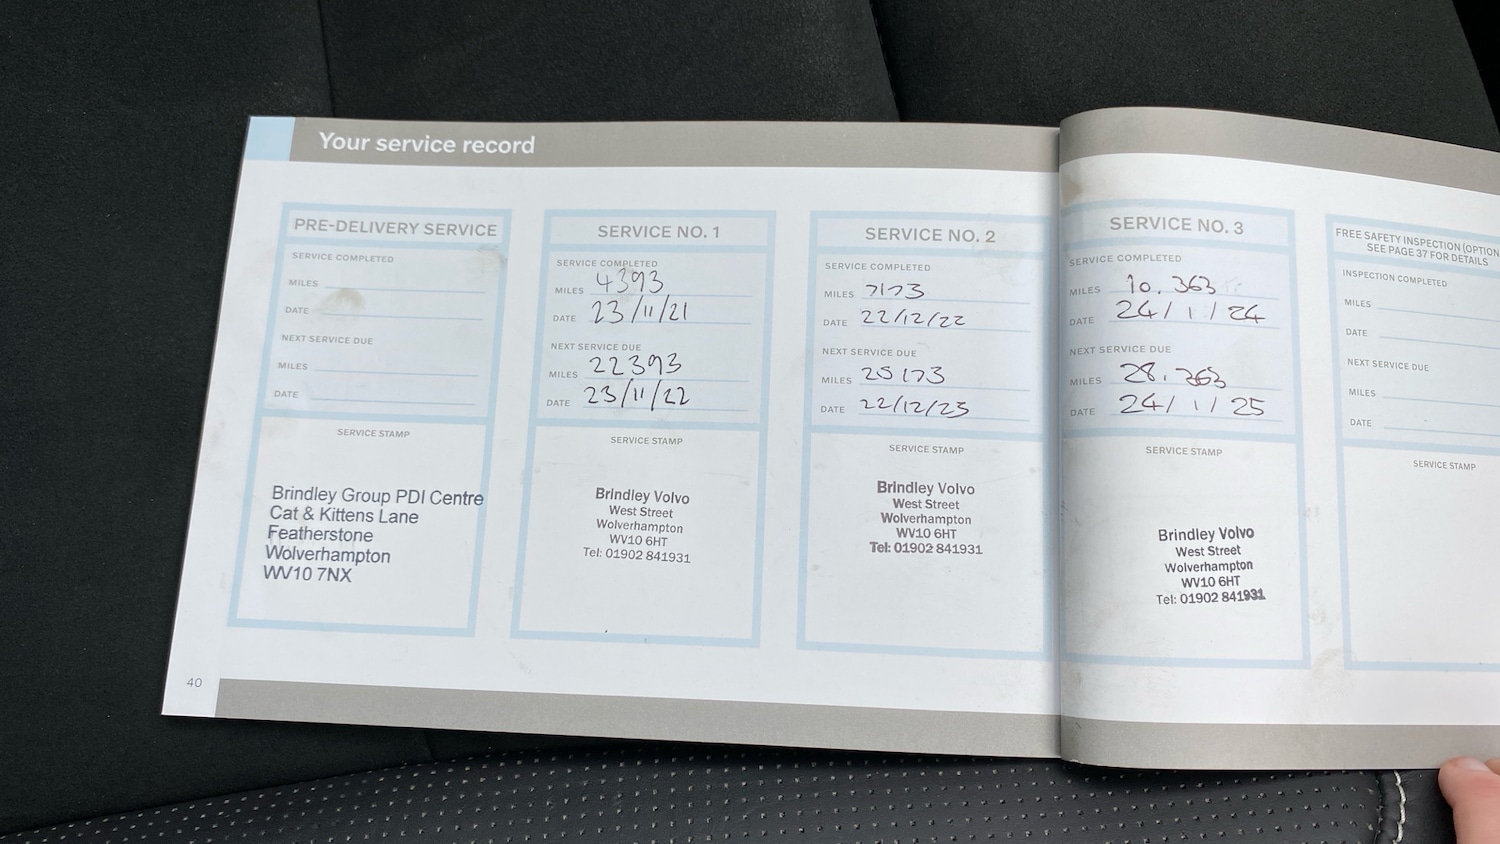 Your service record
PRE-DELIVERY SERVICE
SERVICE COMPLETED
MILES
DATE
NEXT SERVICE DUE
MILES
DATE
SERVICE STAMP
Brindley Group PDI Centre
Cat & Kittens Lane
Featherstone
Wolverhampton
WV10 7NX
SERVICE NO. 1
SERVICE COMPLETED
MILES 4393
DATE 23/11/21
NEXT SERVICE DUE
MILES 22393
DATE 23/11/22
SERVICE STAMP
Brindley Volvo
West Street
Wolverhampton
WV10 6HT
Tel: 01902 841931
SERVICE NO. 2
SERVICE COMPLETED
MILES 7173
DATE 22/12/22
NEXT SERVICE DUE
MILES 25173
DATE 22/12/23
SERVICE STAMP
Brindley Volvo
West Street
Wolverhampton
WV10 6HT
Tel: 01902 841931
SERVICE NO. 3
SERVICE COMPLETED
MILES 10.363
DATE 24/1/24
NEXT SERVICE DUE
MILES 28.363
DATE 24/1/25
SERVICE STAMP
Brindley Volvo
West Street
Wolverhampton
WV10 6HT
Tel: 01902 841931
FREE SAFETY INSPECTION (OPTION
SEE PAGE 37 FOR DETAILS
INSPECTION COMPLETED
MILES
DATE
NEXT SERVICE DUE
MILES
DATE
SERVICE STAMP
40